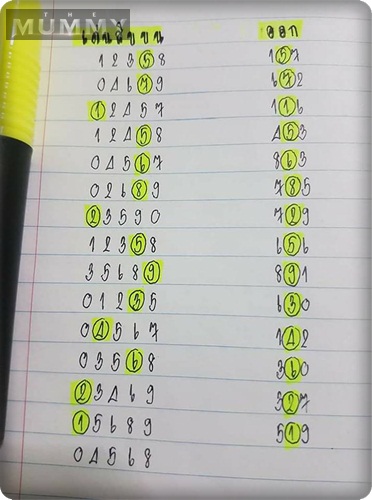 THE
MUMMY
เด่นสิบบน ออก
1 2 3 5 8 157
0 4 6 7 9 672
1 2 4 5 7 116
1 2 4 5 8 453
0 4 5 6 7 863
0 2 6 8 9 785
2 3 5 9 0 729
1 2 3 5 8 656
3 5 6 8 9 891
0 1 2 3 5 630
0 4 5 6 7 142
0 3 5 6 8 360
2 3 4 6 9 327
1 5 6 8 9 519
0 4 5 6 8